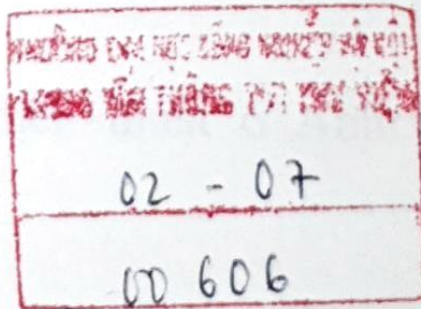 TRƯỜNG ĐẠI HỌC CÔNG NGHIỆP HÀ NỘI
TRUNG TÂM THÔNG TIN THƯ VIỆN
02 - 07
00 606